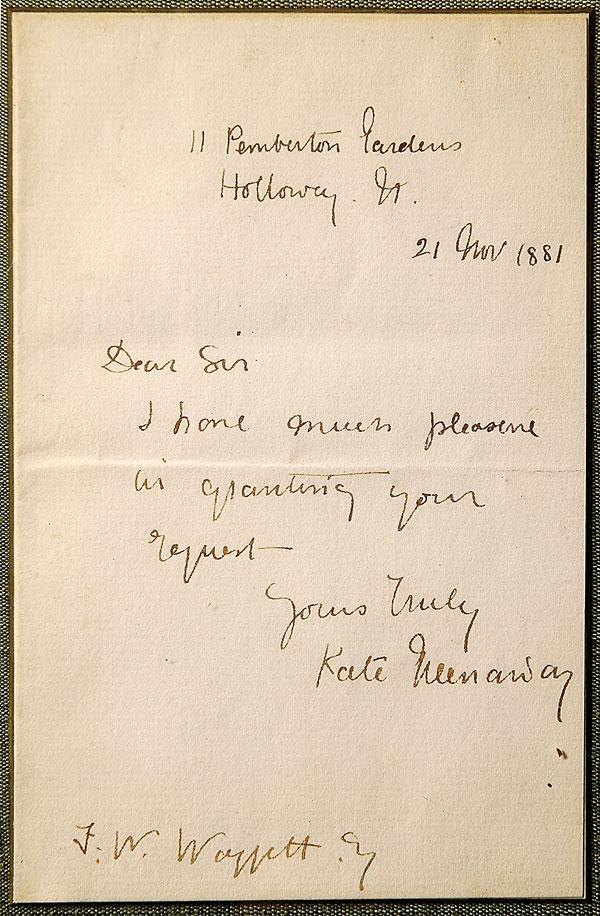 11 Pemberton Gardens
Holloway. N.
21 Nov 1881
Dear Sir
I have much pleasure
in granting your
request
Yours Truly
Kate Greenaway
F. W. Waggett. Esq